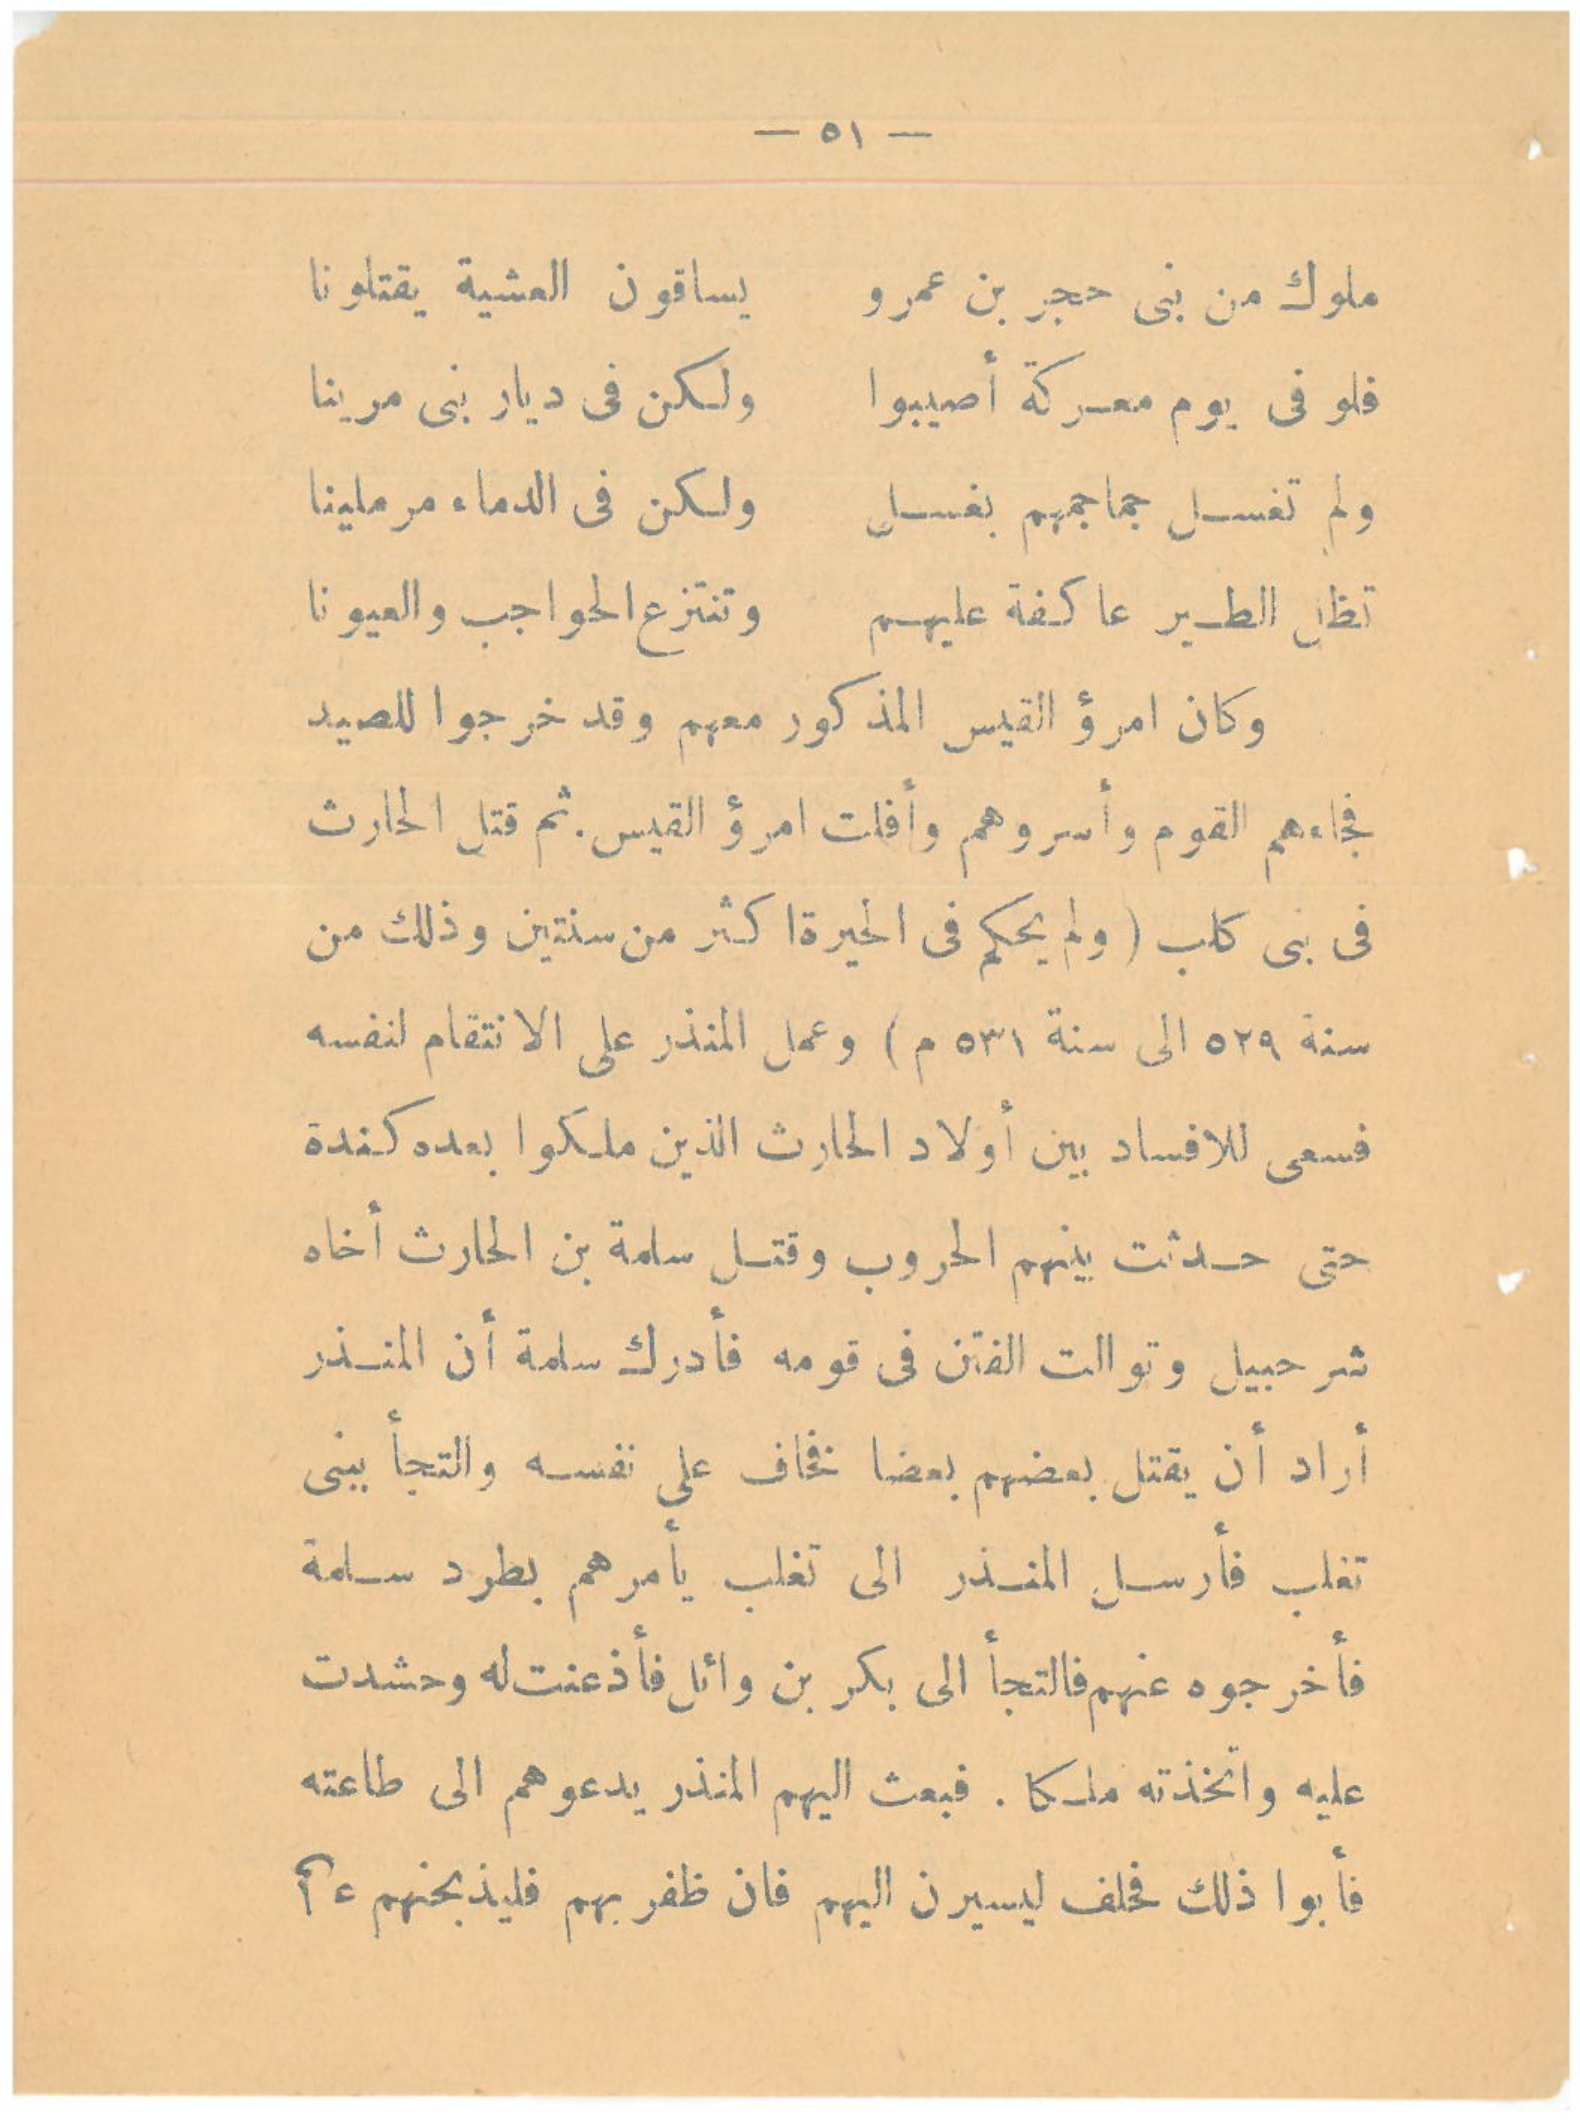 — ٥١ —
ملوك من بنى حجر بن عمرو يساقون العشية يقتلونا
فلو فى يوم معركة أصيبوا ولكن فى ديار بنى مرينا
ولم تغسل جماجمهم بغسل ولكن فى الدماء مرملينا
تظل الطير عاكفة عليهم وتنتزع الحواجب والعيونا
وكان امرؤ القيس المذكور معهم وقد خرجوا للصيد
فجاءهم القوم وأسروهم وأفلت امرؤ القيس. ثم قتل الحارث
فى بنى كلب (ولم يحكم فى الحيرة اكثر من سنتين وذلك من
سنة ٥٢٩ الى سنة ٥٣١ م) وعمل المنذر على الانتقام لنفسه
فسعى للافساد بين أولاد الحارث الذين ملكوا بعده كندة
حتى حدثت بينهم الحروب وقتل سلمة بن الحارث أخاه
شرحبيل وتوالت الفتن فى قومه فأدرك سلمة أن المنذر
أراد أن يقتل بعضهم بعضا فخاف على نفسه والتجأ ببنى
تغلب فأرسل المنذر الى تغلب يأمرهم بطرد سلمة
فأخرجوه عنهم فالتجأ الى بكر بن وائل فأذعنت له وحشدت
عليه واتخذته ملكا . فبعث اليهم المنذر يدعوهم الى طاعته
فأبوا ذلك فحلف ليسيرن اليهم فان ظفر بهم فليذبحنهم